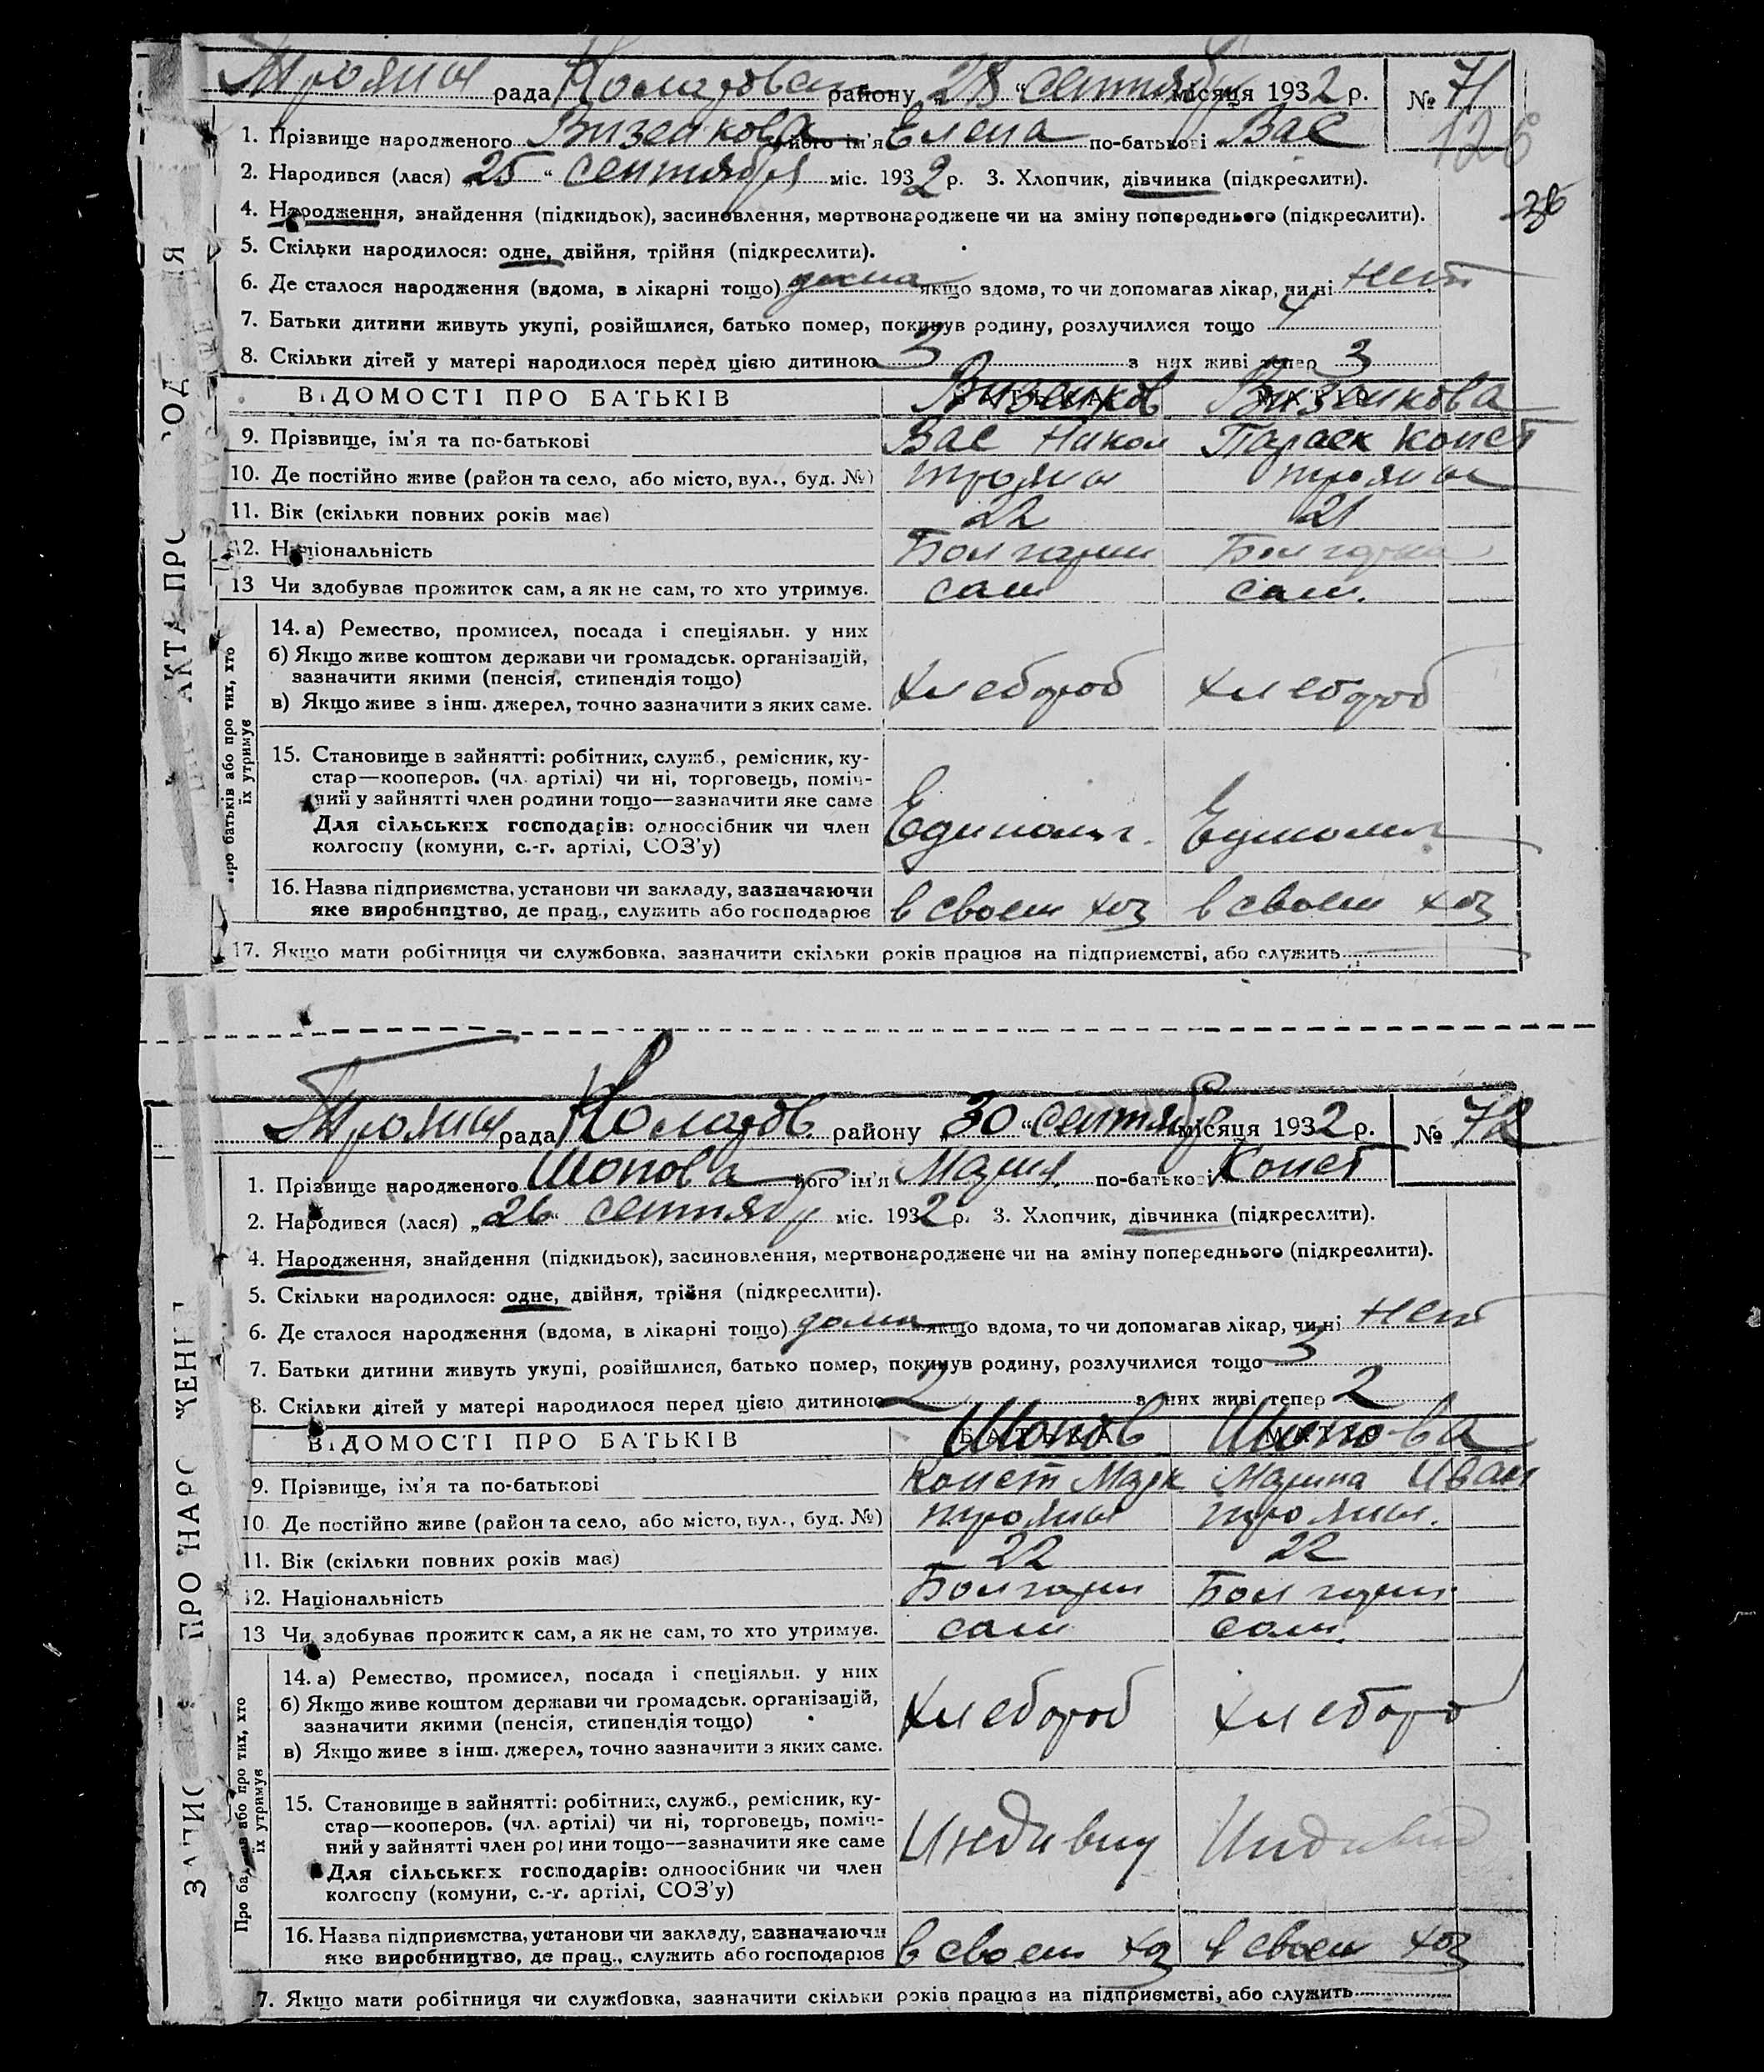 Трояны рада Коларовск району „28“ сентября місяця 1932 р. № 71
126
1. Прізвище народженого Визенкова його ім'я Елена по-батькові Вас
2. Народився (лася) „25“ сентября міс. 1932 р. 3. Хлопчик, дівчинка (підкреслити).
36
4. Народження, знайдення (підкидьок), засиновлення, мертвонароджене чи на зміну попереднього (підкреслити).
5. Скільки народилося: одне, двійня, трійня (підкреслити).
6. Де сталося народження (вдома, в лікарні тощо) дома якщо вдома, то чи допомагав лікар, чи ні нет
7. Батьки дитини живуть укупі, розійшлися, батько помер, покинув родину, розлучилися тощо 4
8. Скільки дітей у матері народилося перед цією дитиною 3 з них живі тепер 3
ВІДОМОСТІ ПРО БАТЬКІВ БАТЬКА МАТІР
Визенков Визенкова
9. Прізвище, ім'я та по-батькові Вас Никол Параск Конст
10. Де постійно живе (район та село, або місто, вул., буд. №) трояны трояны
11. Вік (скільки повних років має) 22 21
12. Національність Болгарин Болгарка
13 Чи здобуває прожиток сам, а як не сам, то хто утримує. сам сам.
Про батьків або про тих, хто їх утримує
14. а) Ремество, промисел, посада і спеціяльн. у них
б) Якщо живе коштом держави чи громадськ. організацій,
зазначити якими (пенсія, стипендія тощо)
в) Якщо живе з інш. джерел, точно зазначити з яких саме. хлебороб хлебороб
15. Становище в зайнятті: робітник, служб., ремісник, ку-
стар—кооперов. (чл. артілі) чи ні, торговець, поміч-
ний у зайнятті член родини тощо—зазначити яке саме
Для сільських господарів: одноосібник чи член Единолич. Единолич
колгоспу (комуни, с.-г. артілі, СОЗ'у)
16. Назва підприємства, установи чи закладу, зазначаючи
яке виробництво, де прац., служить або господарює в своем хоз в своем хоз
17. Якщо мати робітниця чи службовка, зазначити скільки років працює на підприємстві, або служить
Трояны рада Коларов району „30“ сентябр місяця 1932 р. № 72
1. Прізвище народженого Шопова його ім'я Мария по-батькові Конст
2. Народився (лася) „26“ сентябр міс. 1932 р. 3. Хлопчик, дівчинка (підкреслити).
4. Народження, знайдення (підкидьок), засиновлення, мертвонароджене чи на зміну попереднього (підкреслити).
5. Скільки народилося: одне, двійня, трійня (підкреслити).
6. Де сталося народження (вдома, в лікарні тощо) дома якщо вдома, то чи допомагав лікар, чи ні нет
7. Батьки дитини живуть укупі, розійшлися, батько помер, покинув родину, розлучилися тощо 3
8. Скільки дітей у матері народилося перед цією дитиною 2 з них живі тепер 2
ВІДОМОСТІ ПРО БАТЬКІВ БАТЬКА МАТІР
Шопов Шопова
9. Прізвище, ім'я та по-батькові Конст Марк Марина Иван
10. Де постійно живе (район та село, або місто, вул., буд. №) трояны трояны.
11. Вік (скільки повних років має) 22 22
12. Національність Болгарин Болгарин
13 Чи здобуває прожиток сам, а як не сам, то хто утримує. сам сам.
Про батьків або про тих, хто їх утримує
14. а) Ремество, промисел, посада і спеціяльн. у них
б) Якщо живе коштом держави чи громадськ. організацій,
зазначити якими (пенсія, стипендія тощо)
в) Якщо живе з інш. джерел, точно зазначити з яких саме. хлебороб хлеборо
15. Становище в зайнятті: робітник, служб., ремісник, ку-
стар—кооперов. (чл. артілі) чи ні, торговець, поміч-
ний у зайнятті член родини тощо—зазначити яке саме Индивид Индивид
Для сільських господарів: одноосібник чи член
колгоспу (комуни, с.-г. артілі, СОЗ'у)
16. Назва підприємства, установи чи закладу, зазначаючи
яке виробництво, де прац., служить або господарює в своем хоз в своем хоз
17. Якщо мати робітниця чи службовка, зазначити скільки років працює на підприємстві, або служить